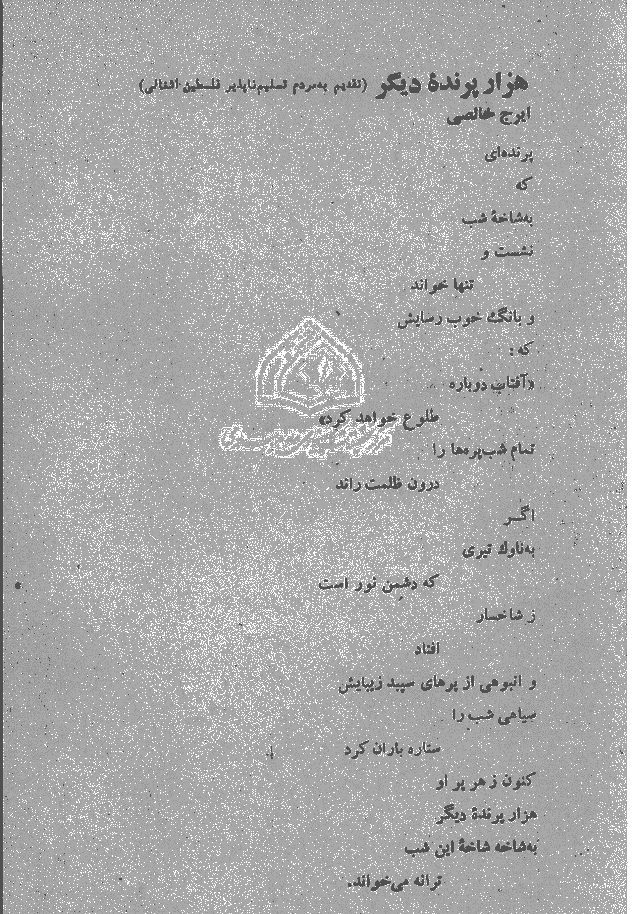 هزار پرندهٔ دیگر (تقدیم به‌مردم تسلیم‌ناپذیر فلسطین اشغالی)
ایرج خالصی
پرنده‌ای
که
به‌شاخهٔ شب
نشست و
تنها خواند
و بانگ خوب رسایش
که:
«آفتاب دوباره
طلوع خواهد کرد»
تمام شب‌پره‌ها را
درون ظلمت راند
اگـر
به‌ناوك تیری
که دشمن نور است
ز شاخسار
افتاد
و انبوهی از پرهای سپید زیبایش
سیاهی شب را
ستاره باران کرد
کنون ز هر پر او
هزار پرندهٔ دیگر
به‌شاخه شاخهٔ این شب
ترانه می‌خواند.